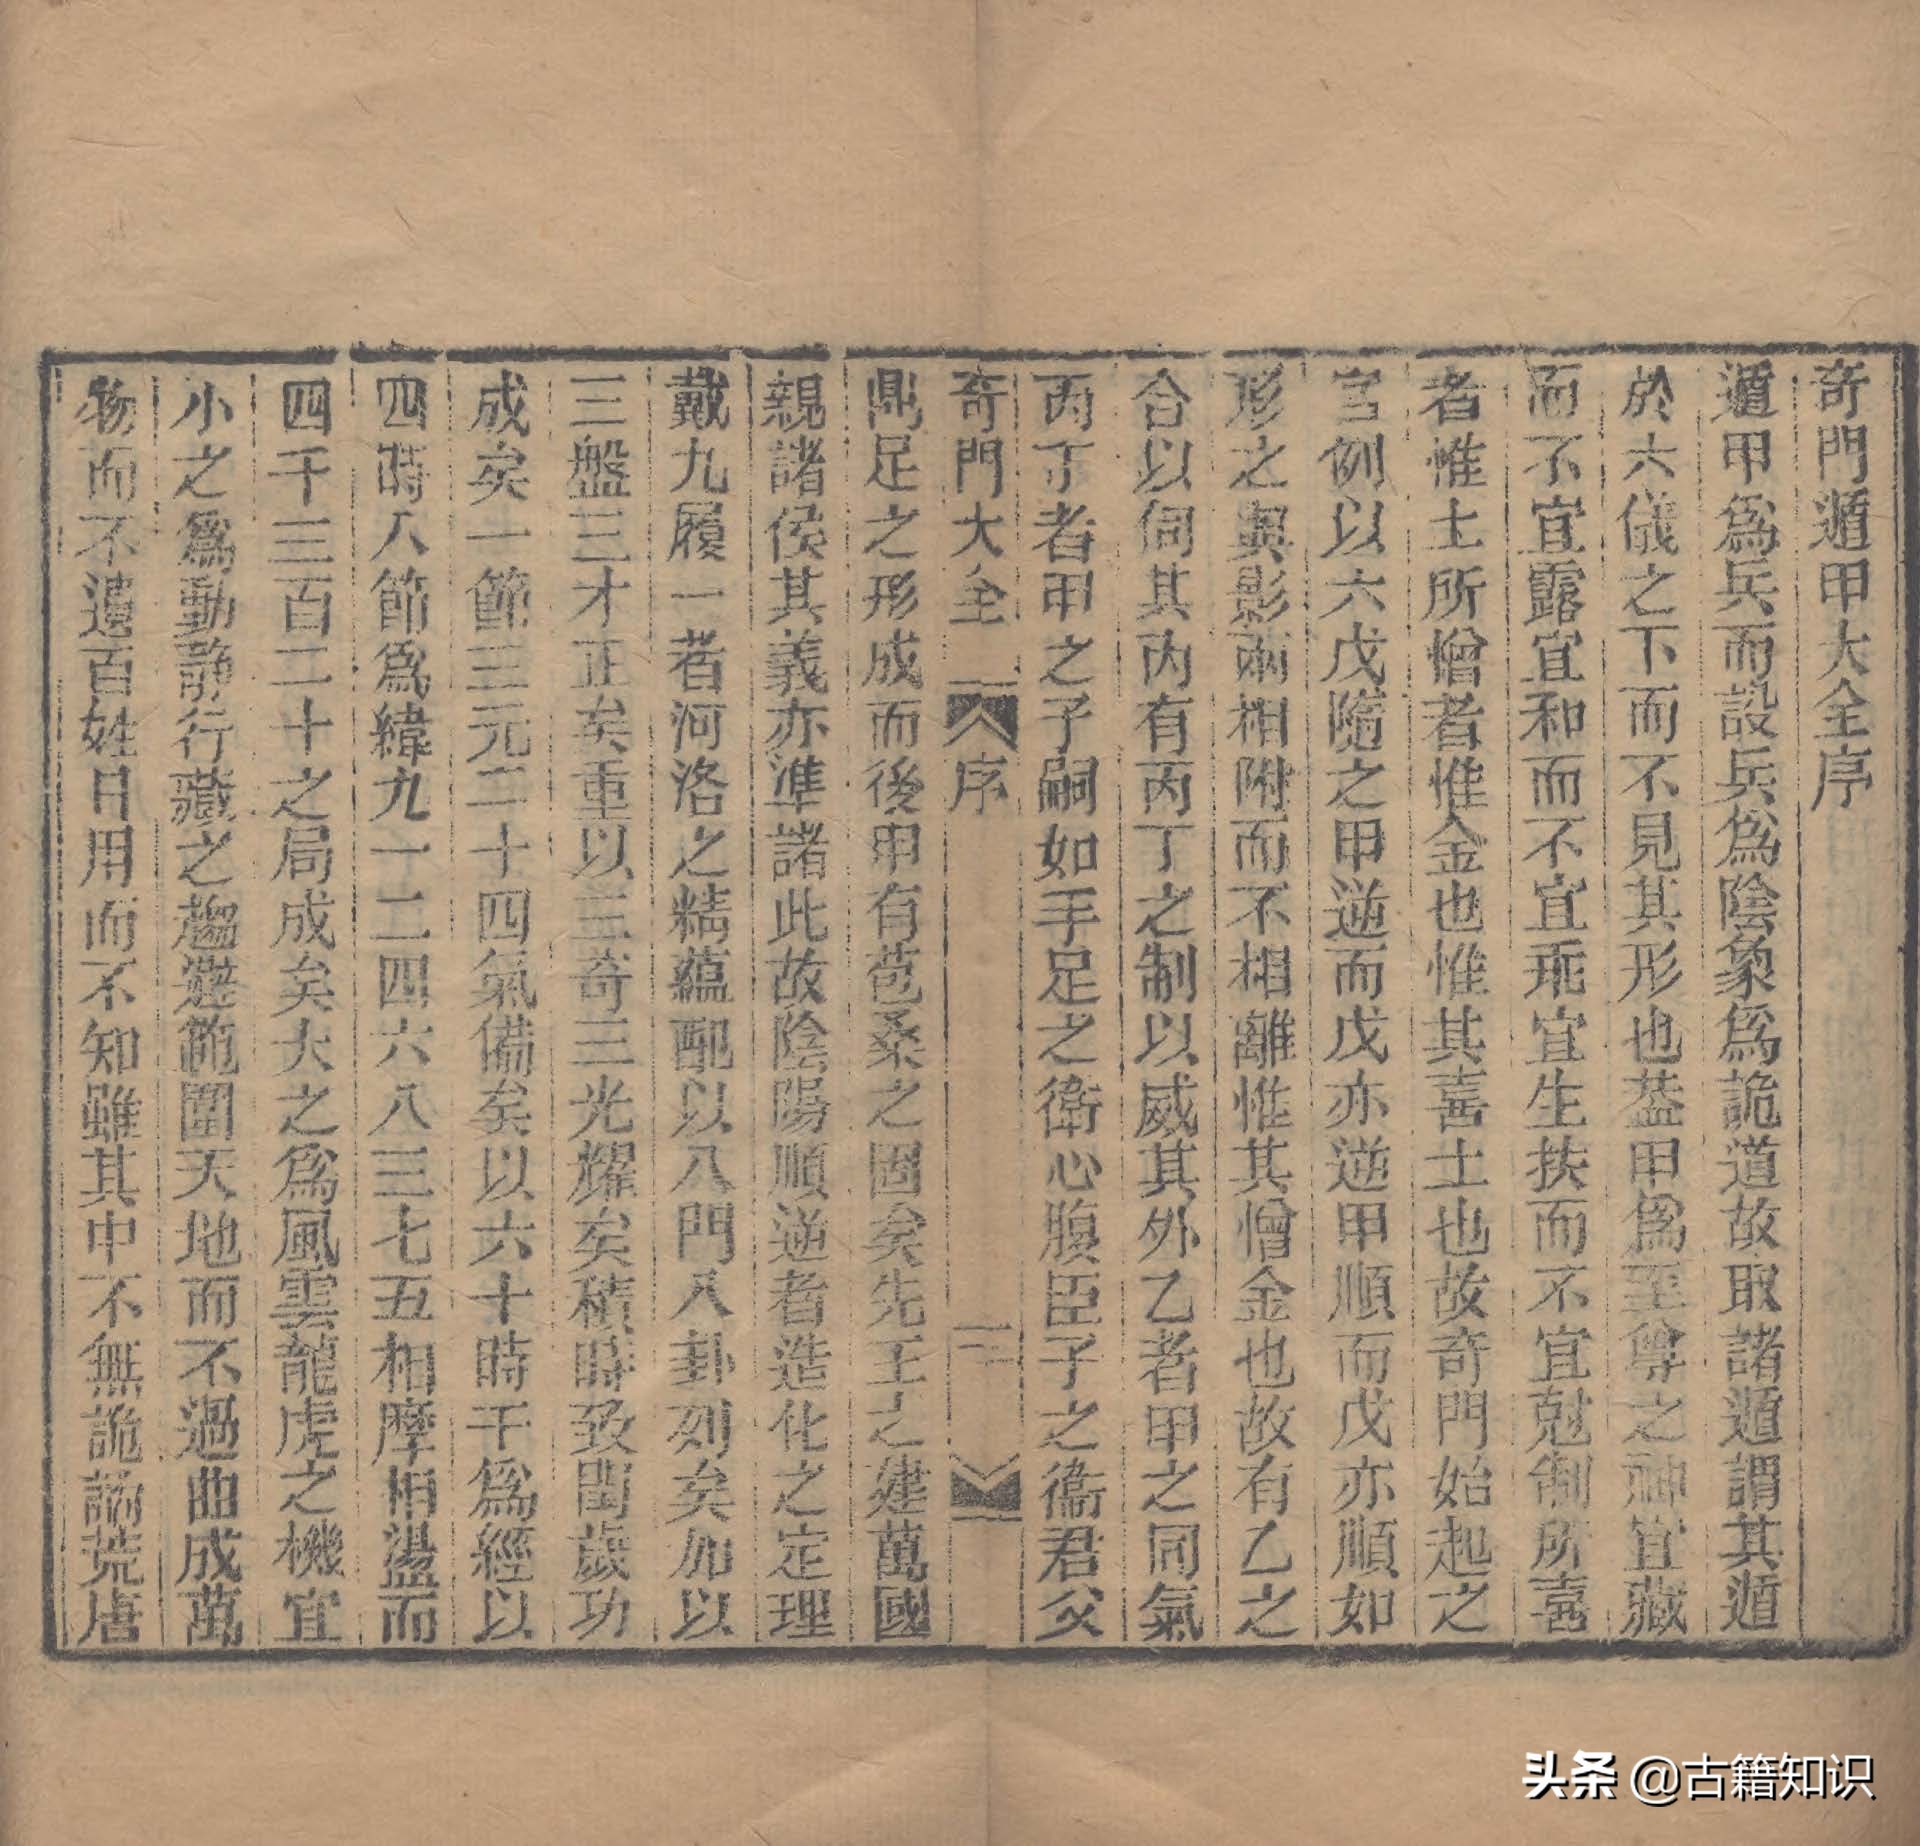 奇門遁甲大全序
遁甲爲兵而設兵爲陰象爲詭道故取諸遁謂其遁
於六儀之下而不見其形也葢甲爲至尊之神宜藏
而不宜露宜和而不宜乖宜生扶而不宜尅制所喜
者惟土所憎者惟金也惟其喜土也故奇門始起之
宮例以六戊隨之甲逆而戊亦逆甲順而戊亦順如
形之與影兩相附而不相離惟其憎金也故有乙之
合以伺其内有丙丁之制以威其外乙者甲之同氣
丙丁者甲之子嗣如手足之衛心腹臣子之衞君父
奇門大全 序 一
鼎足之形成而後甲有苞桑之固矣先王之建萬國
親諸侯其義亦準諸此故陰陽順逆者造化之定理
戴九履一者河洛之精蘊配以八門八卦列矣加以
三盤三才正矣重以三奇三光耀矣積時致閏歲功
成矣一節三元二十四氣備矣以六十時干爲經以
四時八節爲緯九一二四六八三七五相摩相盪而
四千三百二十之局成矣大之爲風雲龍虎之機宜
小之爲動静行藏之趨避範圍天地而不過曲成萬
物而不遺百姓日用而不知雖其中不無詭譎荒唐
头条 @古籍知识